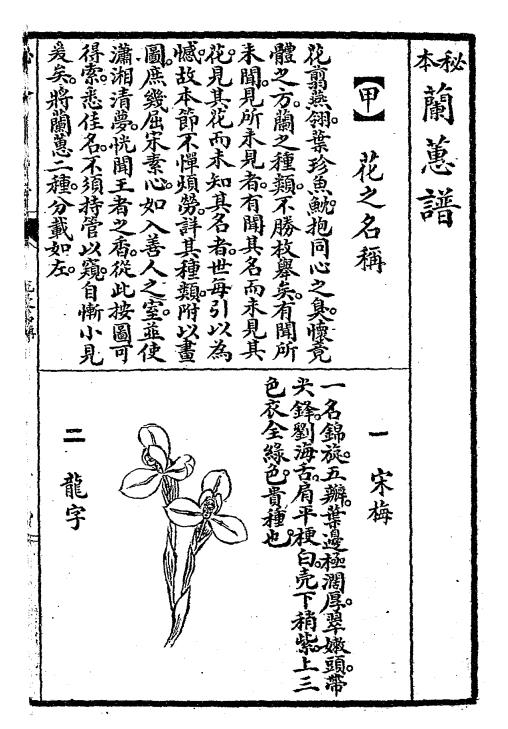 秘本
蘭蕙譜
【甲】 花之名稱
花翦燕翎。葉珍魚魫。抱同心之臭。懷竟
體之方。蘭之種類。不勝枚舉矣。有聞所
未聞。見所未見者。有聞其名而未見其
花。見其花而未知其名者。世每引以為
憾。故本節不憚煩勞。詳其種類。附以畫
圖。庶幾屈宋素心。如入善人之室。並使
瀟湘清夢。恍聞王者之香。從此按圖可
得索。悉佳名。不須持管以窺。自慚小見
爰矣。將蘭蕙二種。分載如左。
一 宋梅
一名錦旋。五瓣。葉邊極濶厚。翠嫩。頭帶
尖鋒。劉海舌。肩平。梗白。売下稍紫。上三
色衣全綠色。貴種也。
二 龍字